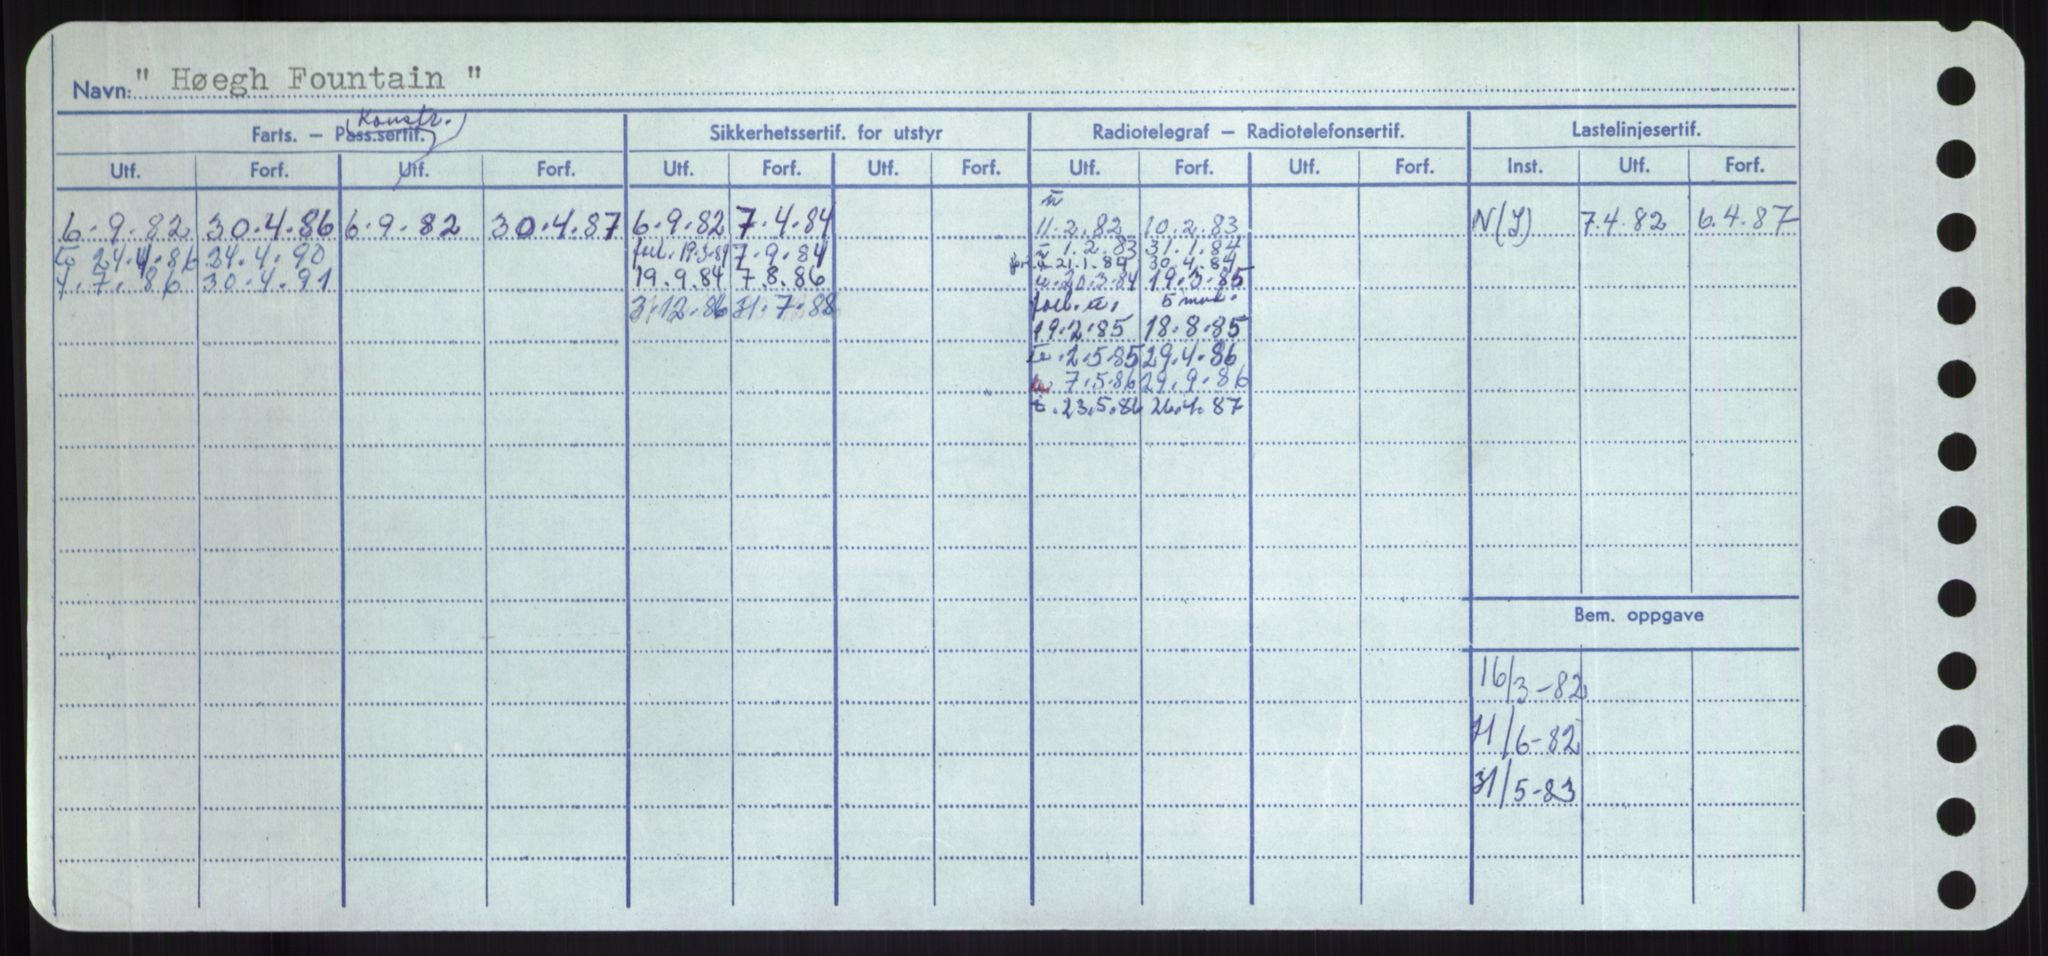 Navn: " Høegh Fountain "
Konstr.
Farts. – Pass.sertif. Sikkerhetssertif. for utstyr Radiotelegraf – Radiotelefonsertif. Lastelinjesertif.
Utf. Forf. Utf. Forf. Utf. Forf. Utf. Forf. Utf. Forf. Utf. Forf. Inst. Utf. Forf.
6.9.82 30.4.86 6.9.82 30.4.87 6.9.82 7.4.84 11.2.82 10.2.83 N(I) 7.4.82 6.4.87
24.4.86 24.4.90 forl. 19.3.84 7.9.84 1.2.83 31.1.84
21.1.84 30.4.84
7.7.86 30.4.91 19.9.84 7.8.86 20.3.84 19.3.85
forl. 5 mnd.
31.12.86 31.7.88
19.2.85 18.8.85
2.5.85 29.4.86
7.5.86 29.9.86
23.5.86 26.4.87
Bem. oppgave
16/3-82
11/6-82
31/5-83